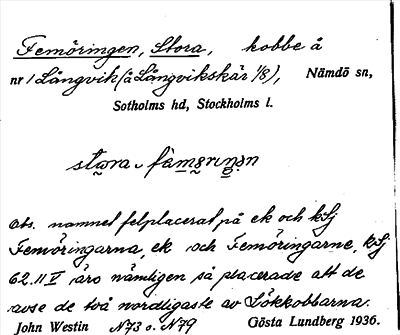 Femöringen, Stora, kobbe å
nr 1 Långvik (å Långvikskär 1/8), Nämdö sn,
Sotholms hd, Stockholms l.
Obs. namnet felplacerat på ek och kSj
Femöringarna, ek och Femöringarne, kSj
62.II V äro nämligen så placerade att de
avse de två nordligaste av Sökkobbarna.
John Westin N73 o. N79 Gösta Lundberg 1936.